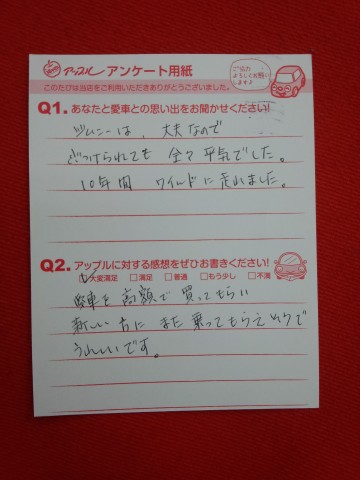 アップル アンケート用紙
ご協力
よろしくお願い
します♪
このたびは当店をご利用いただきありがとうございました。
Q1. あなたと愛車との思い出をお聞かせください!
ジムニーは、丈夫なので
ぶつけられても 全々平気でした。
10年間 ワイルドに走れました。
Q2. アップルに対する感想をぜひお書きください!
大変満足 □満足 □普通 □もう少し □不満
愛車を高額で買ってもらい
新しい方にまた乗ってもらえそうで
うれしいです。